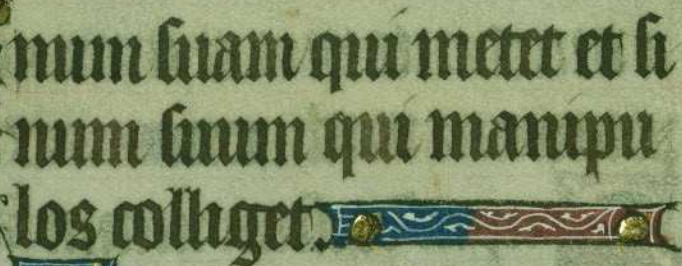 num suam qui metet et si
num suum qui manipu
los colliget.